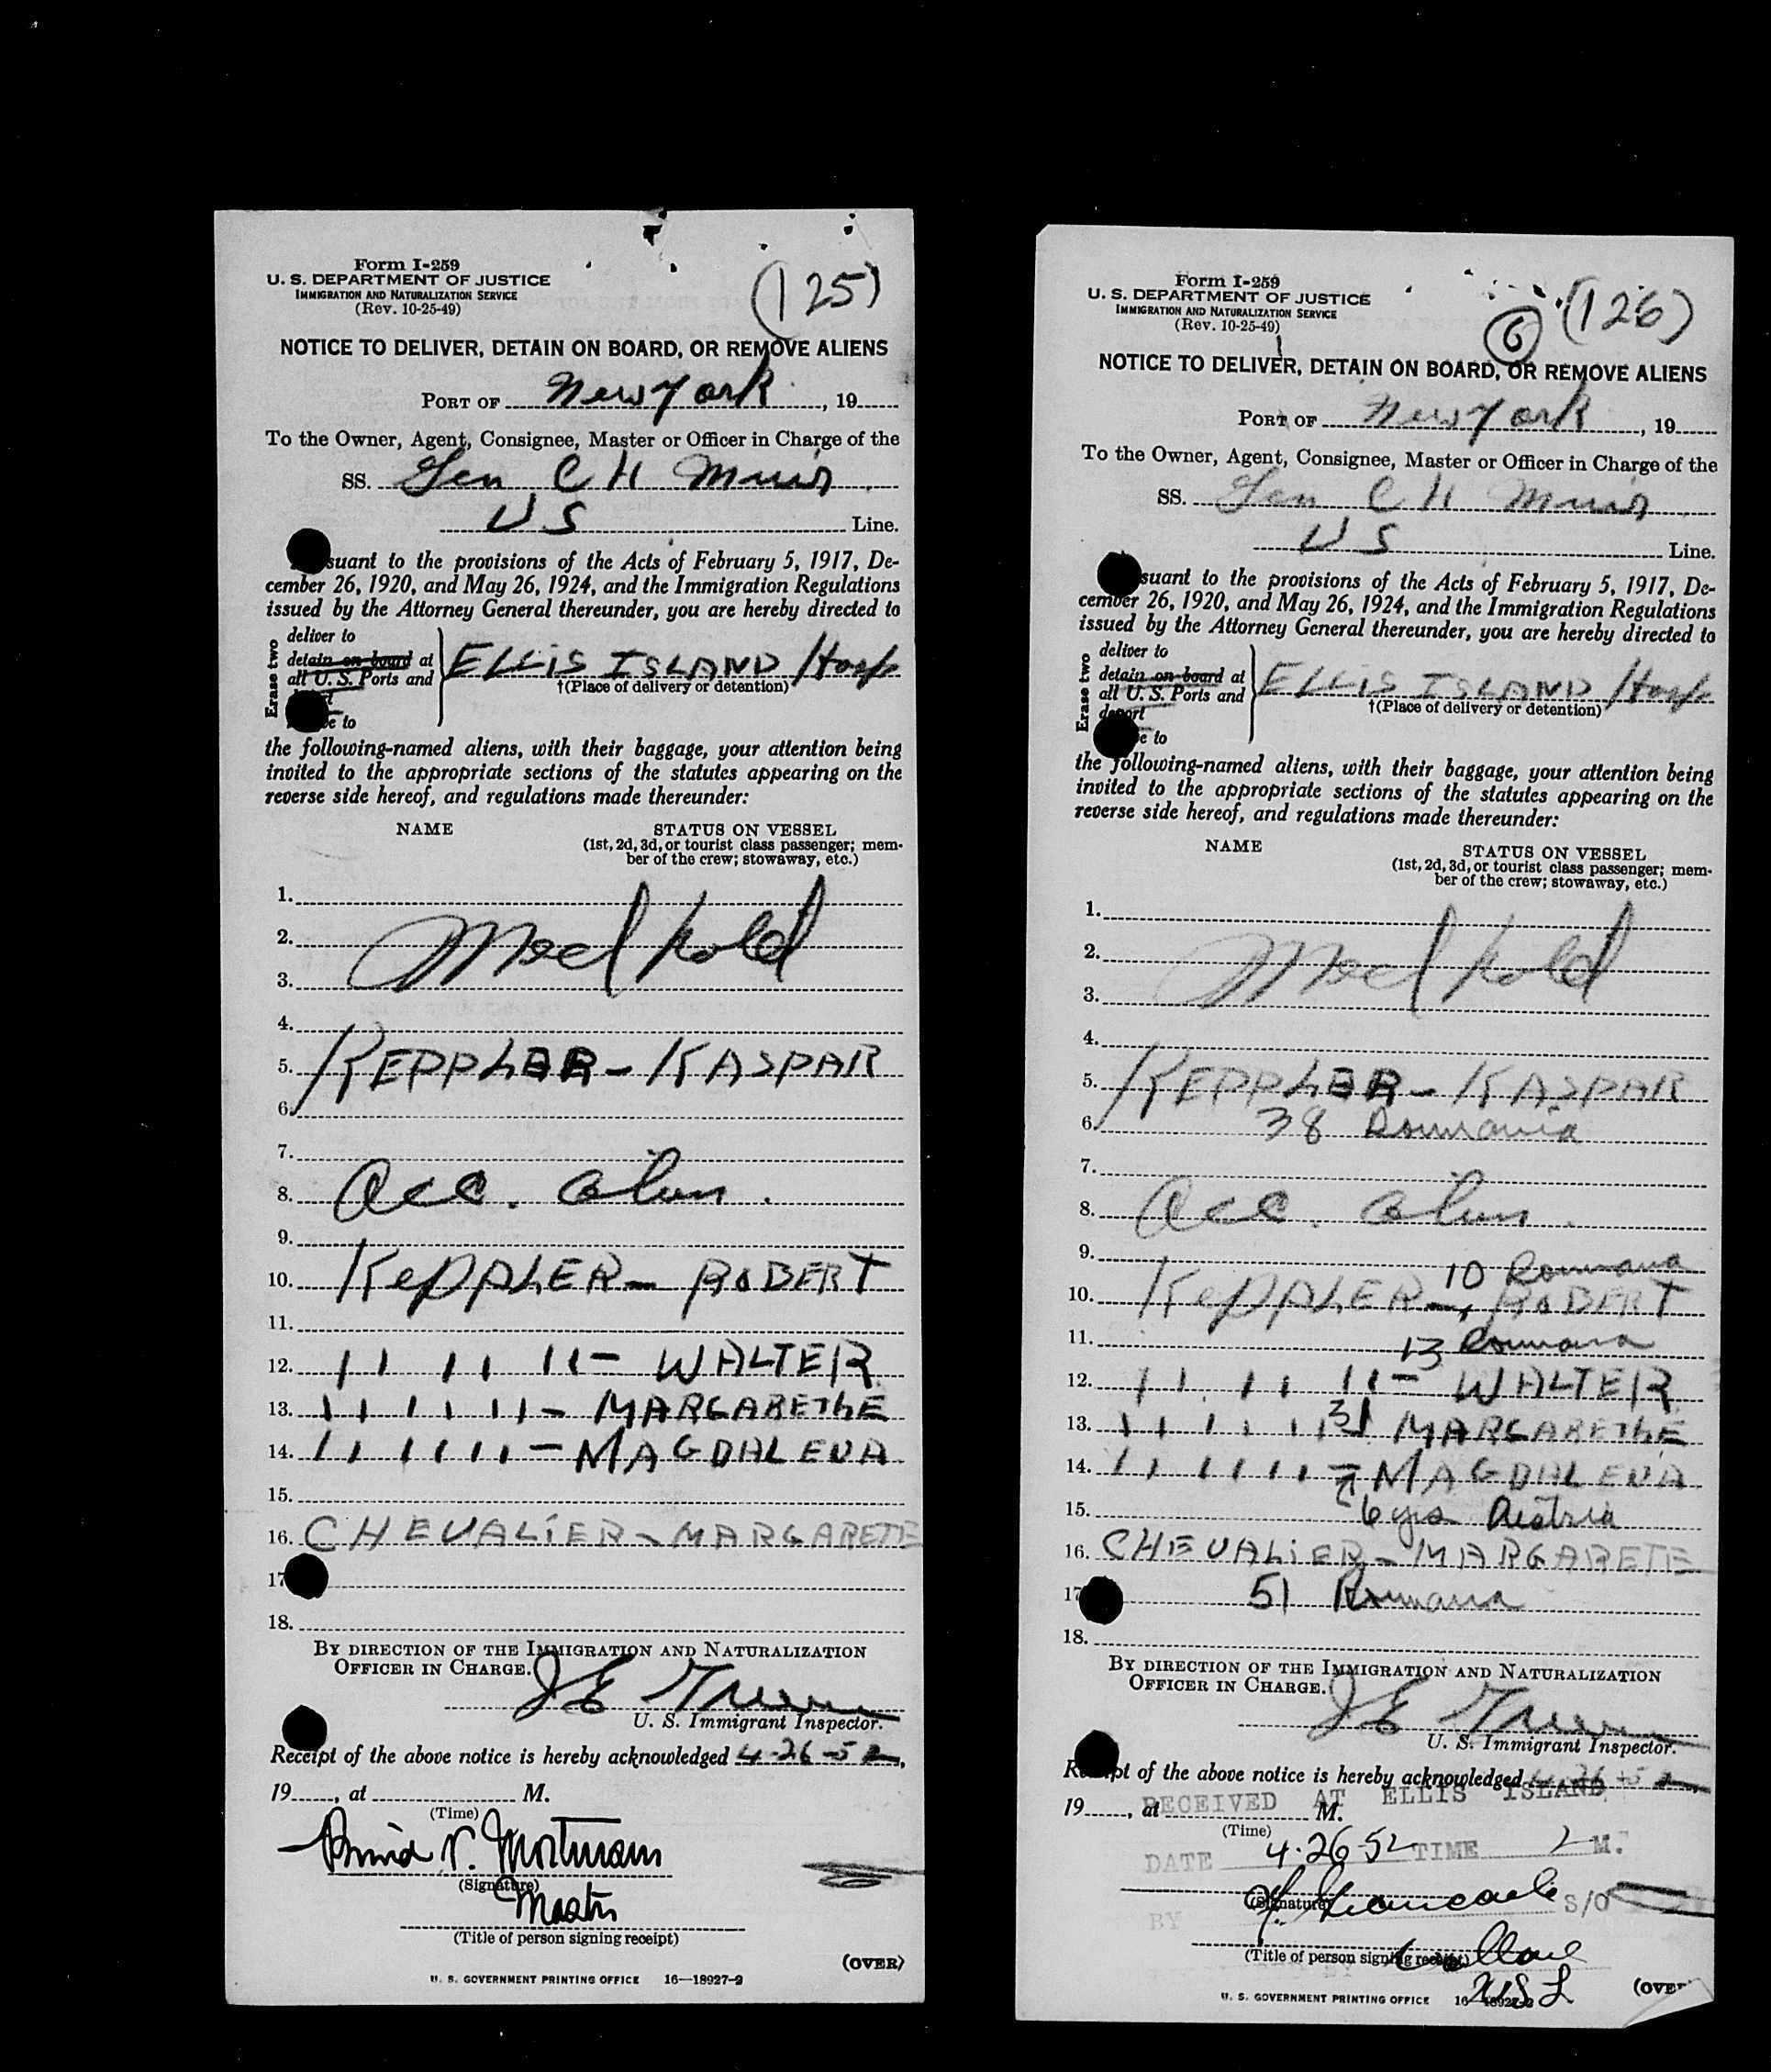 Form I-259
U. S. DEPARTMENT OF JUSTICE
IMMIGRATION AND NATURALIZATION SERVICE
(Rev. 10-25-49)
(125)
NOTICE TO DELIVER, DETAIN ON BOARD, OR REMOVE ALIENS
PORT OF New York, 19
To the Owner, Agent, Consignee, Master or Officer in Charge of the
SS. Gen C H Muir
US Line.
suant to the provisions of the Acts of February 5, 1917, De-
cember 26, 1920, and May 26, 1924, and the Immigration Regulations
issued by the Attorney General thereunder, you are hereby directed to
Erase two
deliver to
detain on board at
all U. S. Ports and
ELLIS ISLAND Hosp
†(Place of delivery or detention)
e to
the following-named aliens, with their baggage, your attention being
invited to the appropriate sections of the statutes appearing on the
reverse side hereof, and regulations made thereunder:
NAME STATUS ON VESSEL
(1st, 2d, 3d, or tourist class passenger; mem-
ber of the crew; stowaway, etc.)
1.
2. Med hold
3.
4.
5. KEPPLER - KASPAR
6.
7.
8. Acc. alien.
9.
10. KEPPLER - ROBERT
11.
12. " " " - WALTER
13. " " " - MARGARETHE
14. " " " - MAGDALENA
15.
16. CHEVALIER - MARGARETE
17
18.
BY DIRECTION OF THE IMMIGRATION AND NATURALIZATION
OFFICER IN CHARGE.
J E
U. S. Immigrant Inspector.
Receipt of the above notice is hereby acknowledged 4-26-52,
19, at M.
(Time)
(Signature)
Master
(Title of person signing receipt)
(OVER)
U. S. GOVERNMENT PRINTING OFFICE 16—18927-2
Form I-259
U. S. DEPARTMENT OF JUSTICE
IMMIGRATION AND NATURALIZATION SERVICE
(Rev. 10-25-49)
6 (126)
NOTICE TO DELIVER, DETAIN ON BOARD, OR REMOVE ALIENS
PORT OF New York, 19
To the Owner, Agent, Consignee, Master or Officer in Charge of the
SS. Gen C H Muir
US Line.
suant to the provisions of the Acts of February 5, 1917, De-
cember 26, 1920, and May 26, 1924, and the Immigration Regulations
issued by the Attorney General thereunder, you are hereby directed to
Erase two
deliver to
detain on board at
all U. S. Ports and
deport
ELLIS ISLAND Hosp
†(Place of delivery or detention)
e to
the following-named aliens, with their baggage, your attention being
invited to the appropriate sections of the statutes appearing on the
reverse side hereof, and regulations made thereunder:
NAME STATUS ON VESSEL
(1st, 2d, 3d, or tourist class passenger; mem-
ber of the crew; stowaway, etc.)
1.
2. Med hold
3.
4.
5. KEPPLER - KASPAR
6. 38 Roumania
7.
8. Acc. alien.
9. 10 Roumania
10. KEPPLER - ROBERT
11. 13 Roumania
12. " " " - WALTER
13. " " " 31 MARGARETHE
14. " " " - MAGDALENA
15. 6 yrs Austria
16. CHEVALIER - MARGARETE
17 51 Roumania
18.
BY DIRECTION OF THE IMMIGRATION AND NATURALIZATION
OFFICER IN CHARGE.
J E
U. S. Immigrant Inspector.
Receipt of the above notice is hereby acknowledged 4-26-52
19, at M.
RECEIVED AT ELLIS ISLAND
(Time)
DATE 4-26-52 TIME M.
(Signature)
BY S/O
(Title of person signing receipt)
U. S. GOVERNMENT PRINTING OFFICE 16—18927-2
(OVE